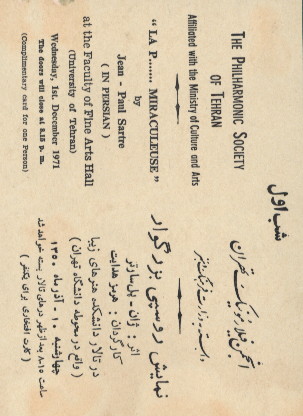 THE PHILHARMONIC SOCIETY
OF TEHRAN
Affiliated with the Ministry of Culture and Arts
"LA P........ MIRACULEUSE"
by
Jean - Paul Sartre
( IN PERSIAN )
at the Faculty of Fine Arts Hall
(University of Tehran)
Wednesday, 1st. December 1971
The doors will close at 8.15 p. m.
(Complimentary card for one Person)
شب اول
انجمن فیلارمونیک تهران
وابسته به وزارت فرهنگ و هنر
نمایش روسپی بزرگوار
اثر : ژان - پل - سارتر
کارگردان : هرمز هدایت
در تالار دانشکده هنرهای زیبا
( واقع در محوطه دانشگاه تهران )
چهارشنبه ۱۰ - آذر ماه ۱۳۵۰
ساعت ۸-۱۵ بعد از ظهر درهای تالار بسته خواهد شد
( کارت افتخاری برای یکنفر )